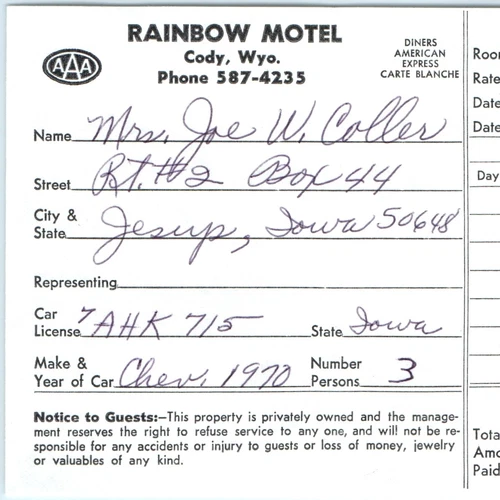 RAINBOW MOTEL
Cody, Wyo.
Phone 587-4235
AAA
DINERS
AMERICAN
EXPRESS
CARTE BLANCHE
Name Mrs. Joe W. Coller
Street Rt. #2 Box 44
City &
State Jesup, Iowa 50648
Representing
Car
License 7 AHK 715 State Iowa
Make &
Year of Car Chev. 1970 Number
Persons 3
Notice to Guests:—This property is privately owned and the manage-
ment reserves the right to refuse service to any one, and will not be re-
sponsible for any accidents or injury to guests or loss of money, jewelry
or valuables of any kind.
Roo
Rate
Date
Date
Day
Tota
Amo
Paid